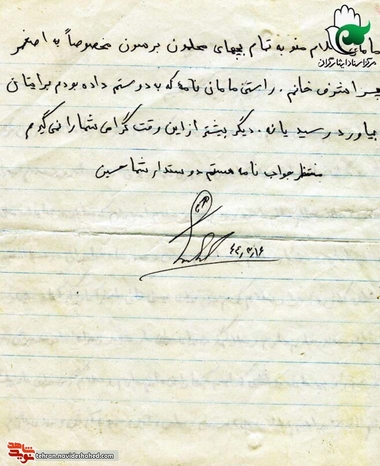 مامان سلام منو به تمام بچهای محلمون برسون مخصوصاً به اصغر
پسر اشرف خانم. راستی مامان نامه که به دوستم داده بودم برایتان
بیاورد رسید یا نه. دیگر بیشتر از این وقت گرامی شما را نمی‌گیرم
منتظر جواب نامه هستم دوستدار شما حسین
مرکز اسناد ایثارگران
tehran.navideshahed.com